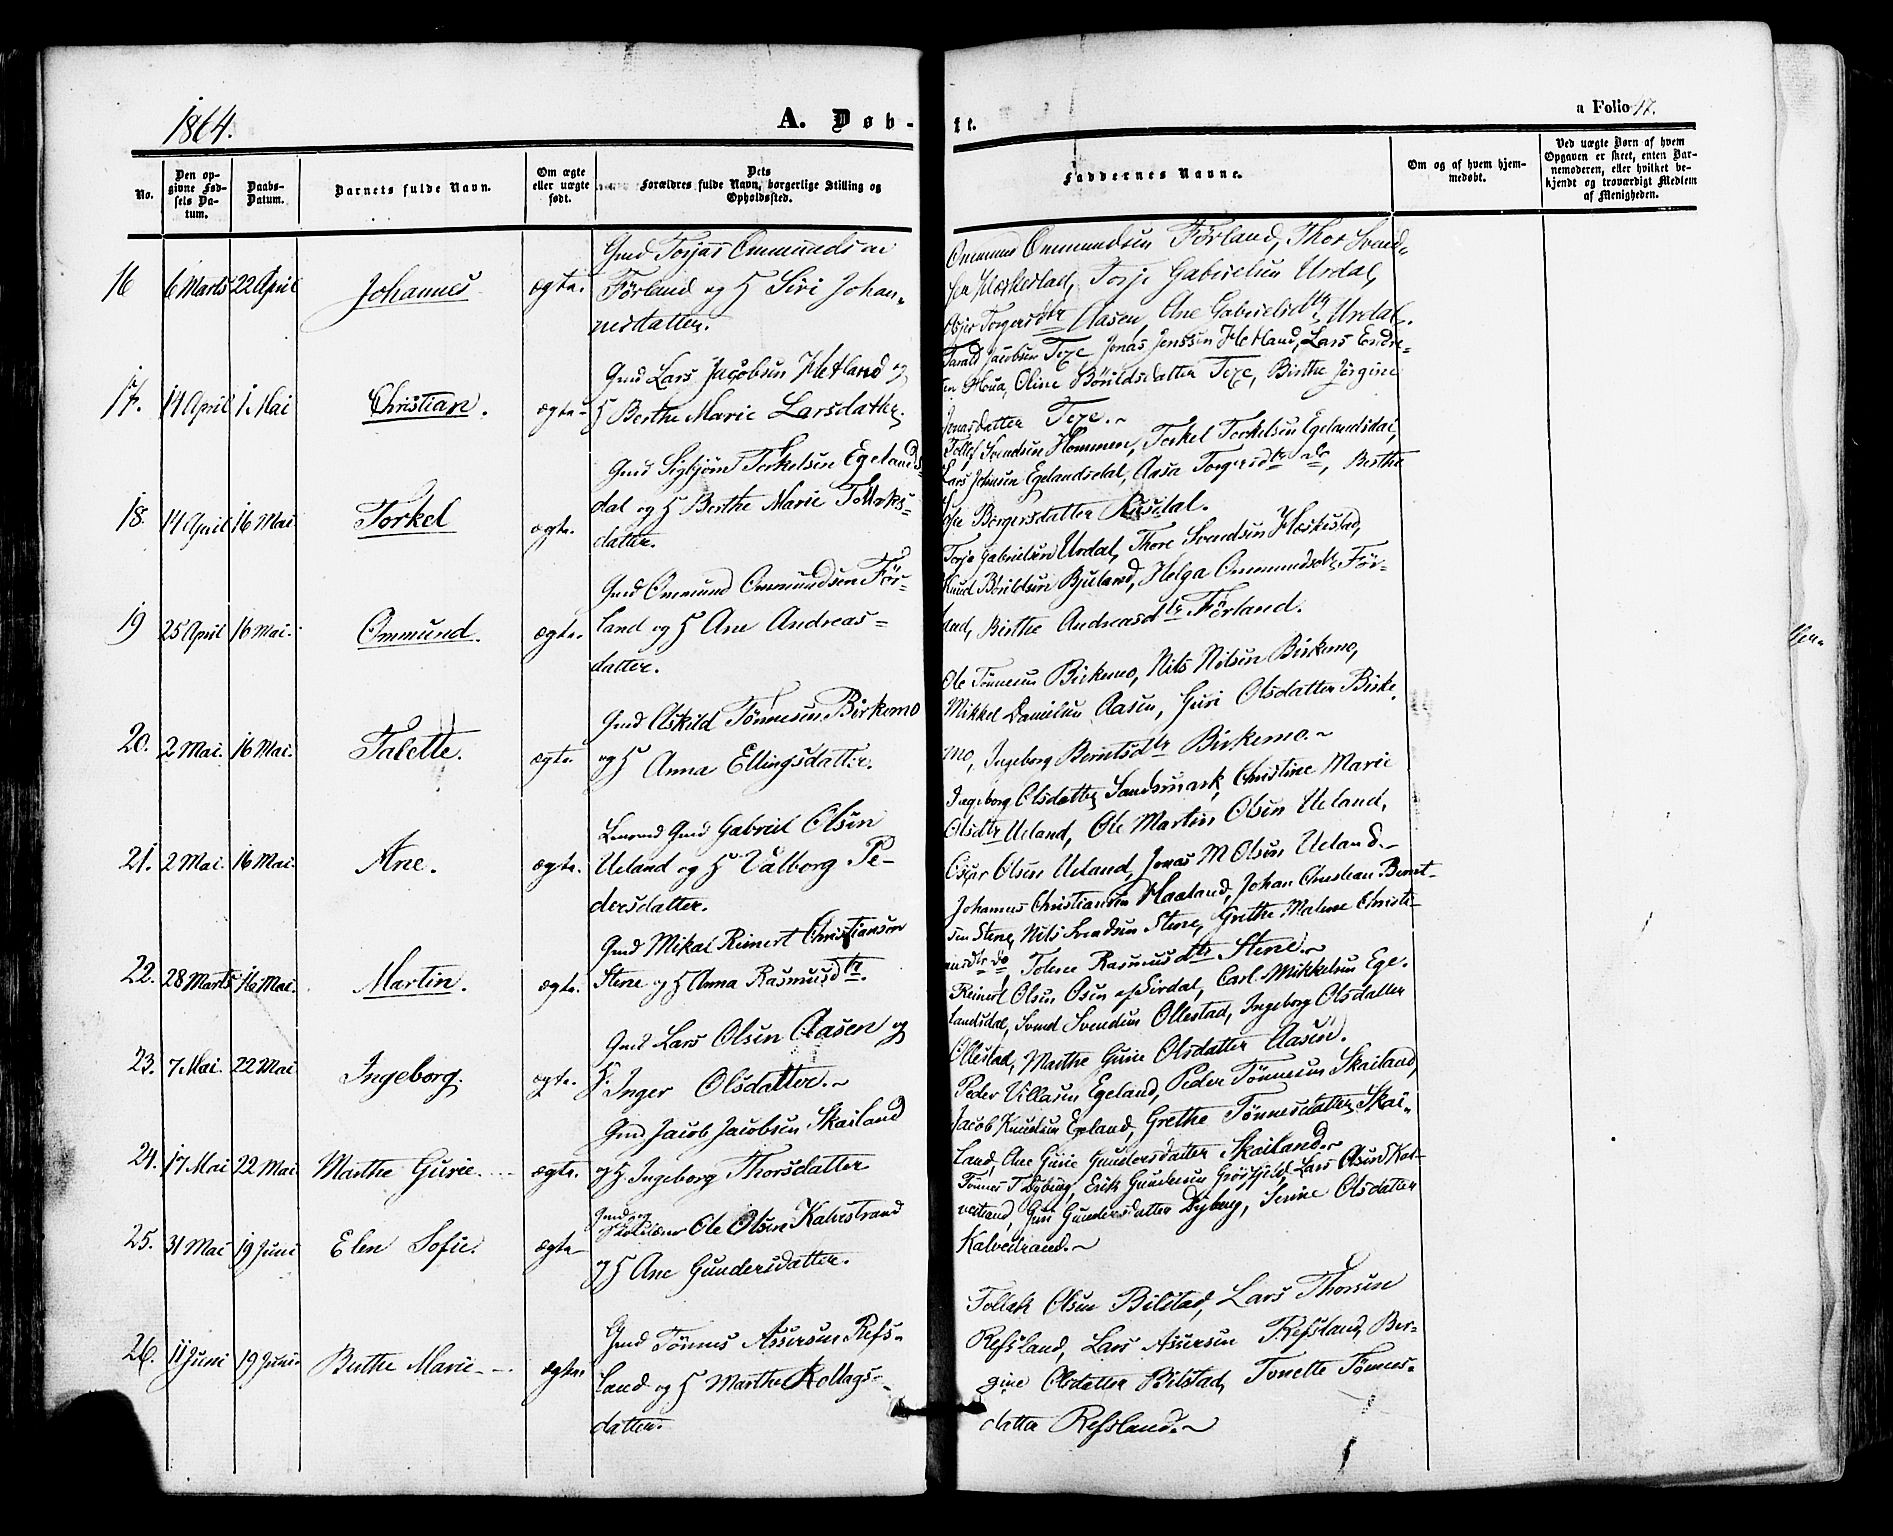 1864.
A. Døb-
ft.
a Folio 17.
No.
Den op-
givne Fød-
sels Da-
tum.
Daabs-
Datum.
Barnets fulde Navn.
Om ægte
eller uægte
født.
Dets
Forældres fulde Navn, borgerlige Stilling og
Opholdssted.
Faddernes Navne.
Om og af hvem hjem-
medøbt.
Ved uægte Børn af hvem
Opgaven er skeet, enten Bar-
nemoderen, eller hvilket be-
kjendt og troværdigt Medlem
af Menigheden.
16 6 Marts 22 April Johannes ægte.
Gmd Torjus Ommundsen
Förland og H Siri Johan-
nesdatter.
Ommund Ommundsen Förland, Thor Svend-
sen Hæskestad, Torje Gabrielsen Urdal,
Torgersdtr Aasen, Ane Gabrielsdtr Urdal.
17. 14 April 1 Mai Christian. ægte-
Gmd Lars Jacobsen Hetland og
H Berthe Marie Larsdatter.
Tarald Jacobsen Teze, Jonas Jenssen Hetland, Lars Endre-
sen Moua, Oline Böreldsdatter Teze, Birthe Jörgine
Jonasdatter Teze.
18. 14 April 16 Mai Torkel ægte.
Gmd Sigbjörn Torkelsen Egelands-
dal og H Berthe Marie Tollaks-
datter.
Tollef Svendsen Hommen, Torkel Torkelsen Egelandsdal,
Lars Johnsen Egelandsdal, Aasa Torgersdtr do, Berthe
Börgersdatter Rusdal.
19 25 April 16 Mai. Ommund. ægte.
Gmd Ommund Ommundsen För-
land og H Ane Andreas-
datter.
Torje Gabrielsen Urdal, Thore Svendsen Hæskestad,
Knud Böreldsen Bjuland, Helga Ommundsdtr För-
land, Berthe Andreasdtr Förland.
20. 2 Mai. 16 Mai. Talette. ægte.
Gmd Askild Tönnesen Birkemo
og H Anna Ellingsdatter.
Ole Tönnesen Birkemo, Nils Nilsen Birkemo,
Mikkel Danielsen Aasen, Guri Olsdatter Birke-
mo, Ingeborg Berntsdtr Birkemo.
21. 2 Mai 16 Mai. Ane. ægte.
Gmd Gabriel Olsen
Ueland og H Valborg Pe-
dersdatter.
Ingeborg Olsdatter Sandsmark, Christine Marie
Olsdtr Ueland, Ole Martin Olsen Ueland,
Olsen Ueland, Jonas M Olsen Ueland.
22. 28 Marts 16 Mai. Martin. ægte.
Gmd Mikal Reinert Christiansen
Stene og H Anna Rasmusdtr.
Johannes Christiansen Haaland, Johan Christian Bernt-
sen Stene, Nils Svendsen Stene, Grethe Malene Christi-
ansdtr do, Tolene Rasmusdtr Stene.
23. 7 Mai. 22 Mai Ingeborg. ægte.
Gmd Lars Olsen Aasen og
H. Inger Olsdatter.
Reinert Olsen Osen af Sirdal, Carl Mikkelsen Ege-
landsdal, Svend Svendsen Ollestad, Ingeborg Olsdatter
Ollestad, Marthe Gurie Olsdatter Aasen.
24. 17 Mai 22 Mai Marthe Gurie. ægte.
Gmd Jacob Jacobsen Skailand
og H Ingeborg Thorsdatter
Peder Villasen Egeland, Peder Tönnesen Skailand,
Jacob Knudsen Egeland, Grethe Tönnesdatter Skai-
land, Ane Gurie Gundersdatter Skailand.
25. 31 Mai 19 Juni Elen Sofie. ægte
Gmd og
Skolelærer Ole Olsen Kalvestrand
og H Ane Gundersdatter.
Tönnes T Dyberg, Erik Gundersen Grösfjeld, Lars Olsen Kal-
vestrand, Guri Gundersdatter Dyberg, Serine Olsdatter
Kalvestrand.
26. 11 Juni 19 Juni Berthe Marie ægte.
Gmd Tönnes Assersen Refs-
land og H Marthe Kollags-
datter.
Tollak Olsen Bilstad, Lars Thorsen
Refsland, Lars Assersen Refsland, Ber-
gine Olsdatter Bilstad, Tonette Tönnes-
datter Refsland.